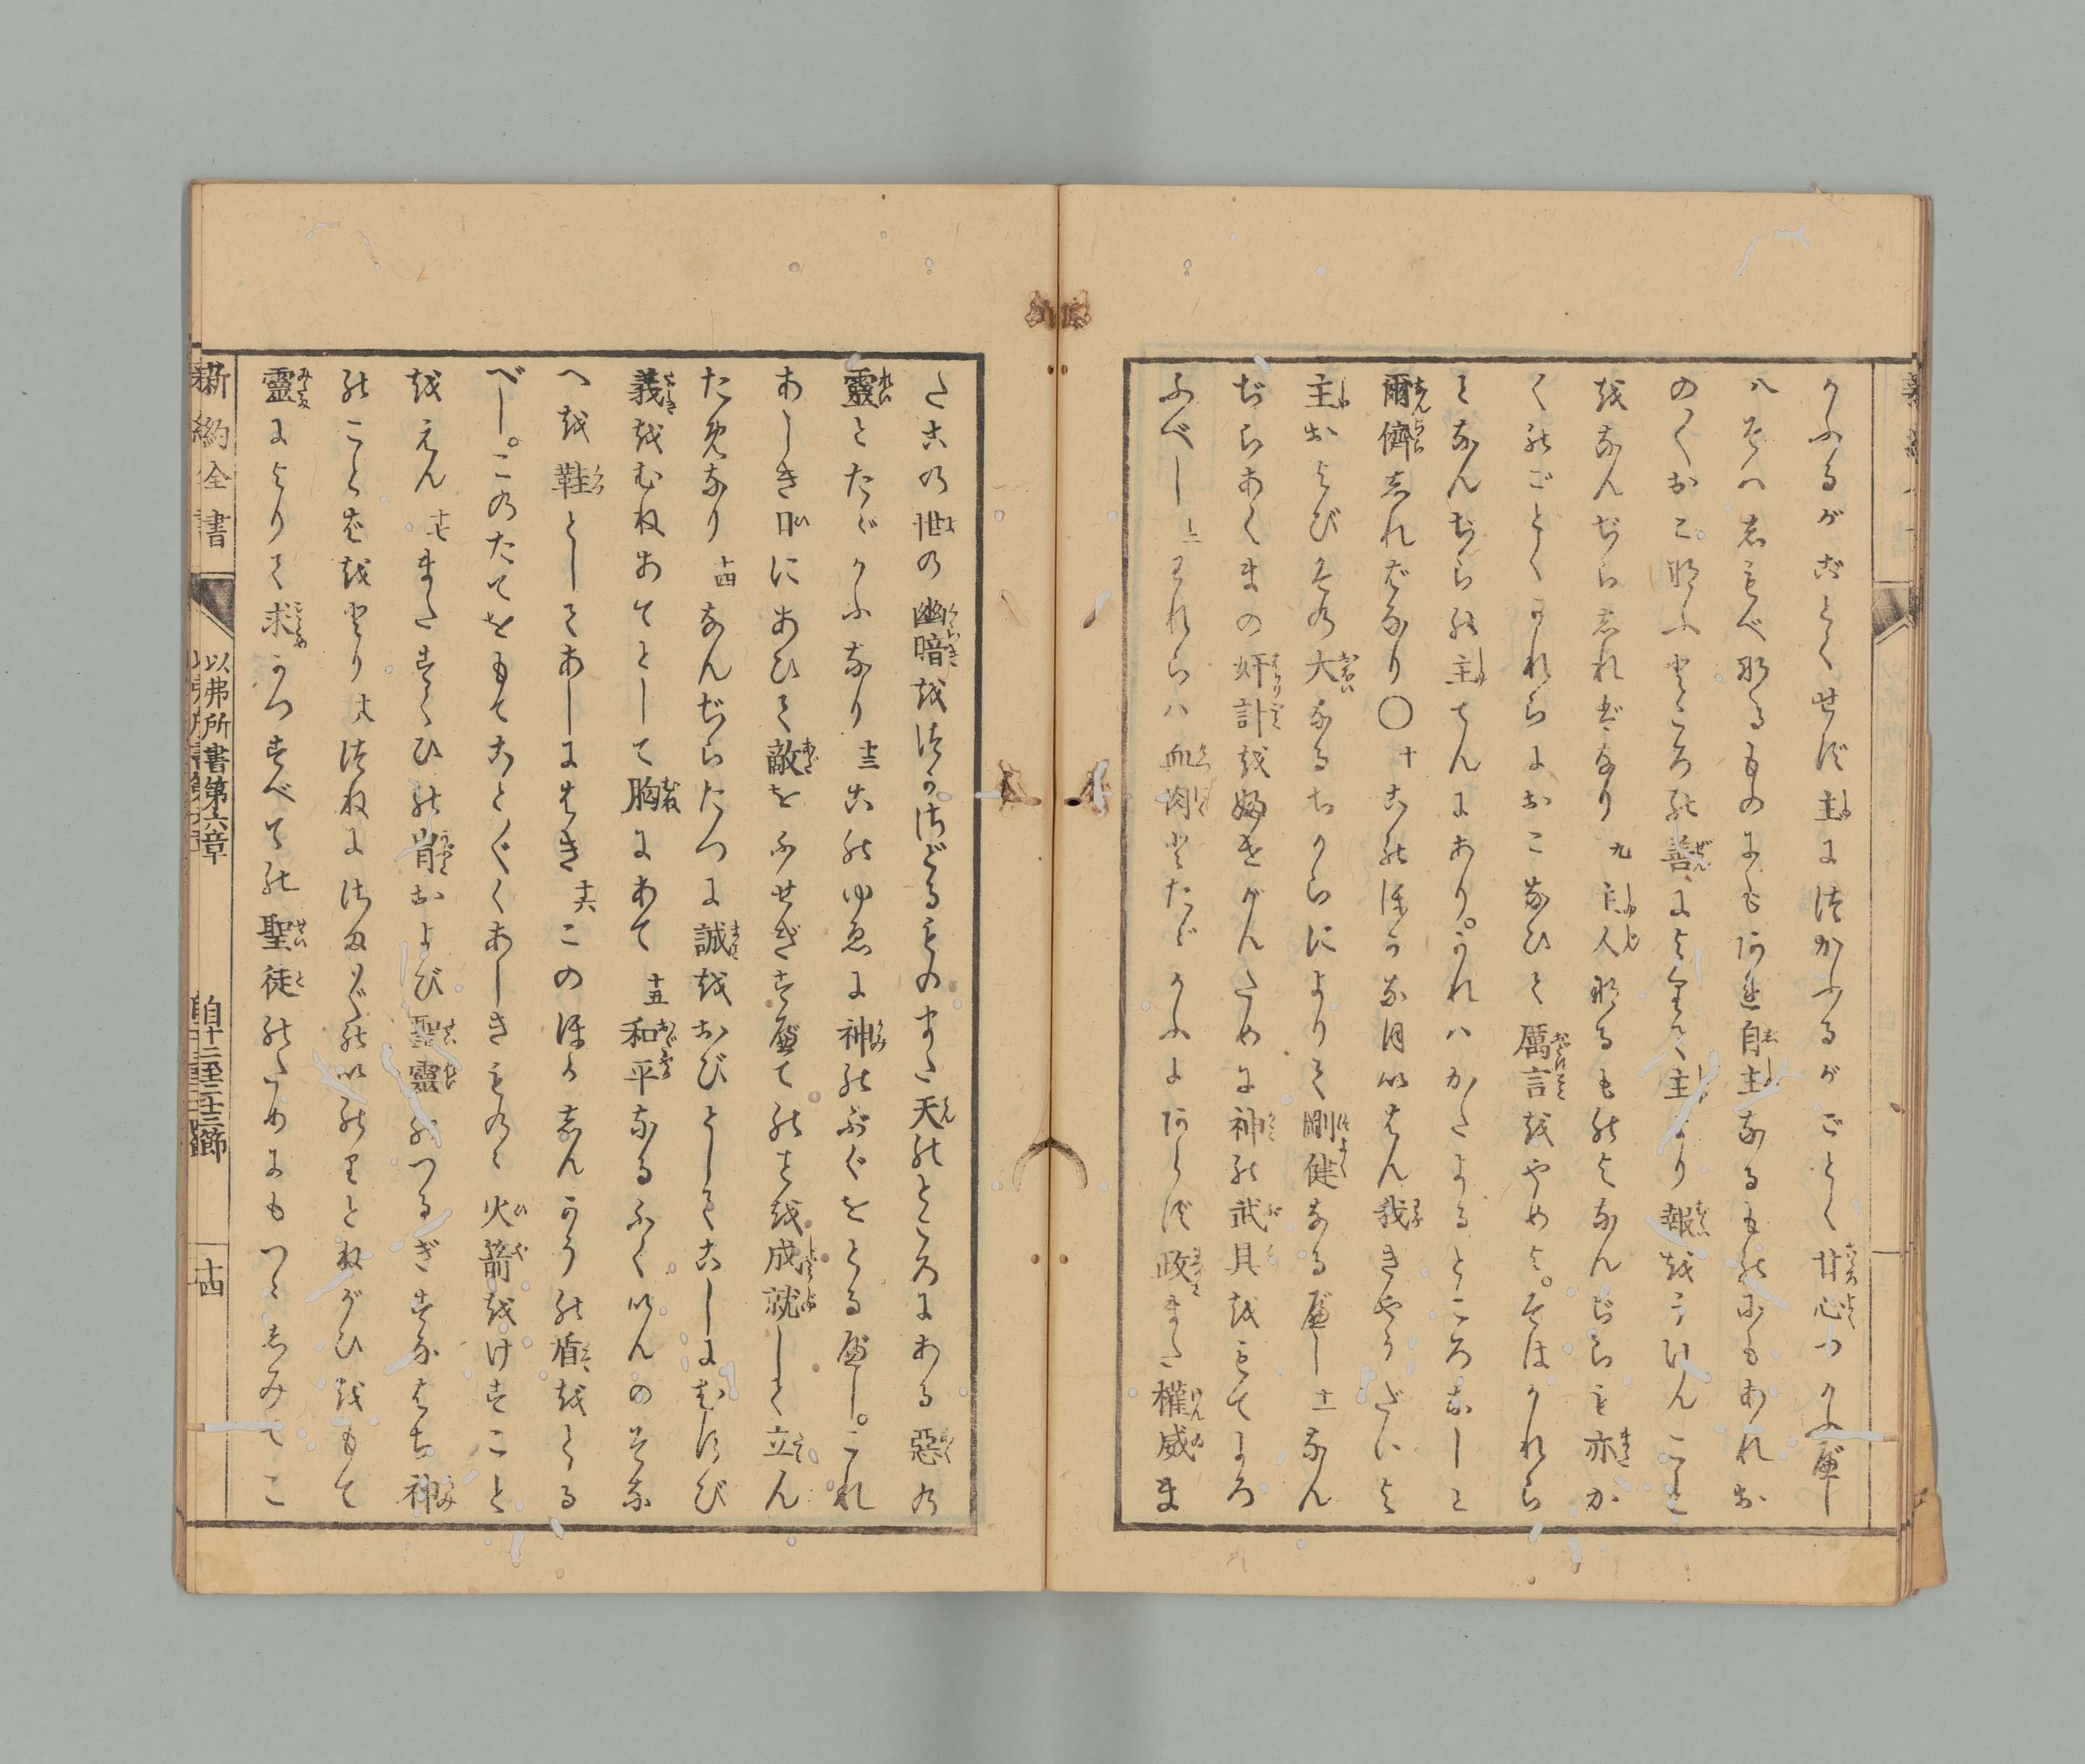 かふるがごとくせず主に從かふるがごとく甘心つかふ可し
八 そハしもべなるものにもあれ自主なるものにもあれお
のおのおこなふところの善により主より報をうけんこと
をなんぢらしれバなり 九 主人なるものよなんぢらも亦か
くのごとくかれらにおこなひて厲言をやめよ。そはかれら
となんぢらの主てんにあり。かれハかたよるところなしと
爾儕しれバなり〇 十 このほかなほいはん我きやうだいよ
主およびその大なるちからによりて剛健なるべし 十一 なん
ぢらあくまの奸計を婦せがんために神の武具をもてよろ
ふべし 十二 われらハ血肉とたゝかふにあらず政また權威ま
たこの世の幽暗をつかさどるものまた天のところにある惡の
靈とたゝかふなり 十三 このゆゑに神のぶぐをとるべし。これ
あしき日にあひて敵をふせぎすべてのことを成就して立ん
ためなり 十四 なんぢらたつに誠をおびとしてこしにむすび
義をむねあてとして胸にあて 十五 和平なるふくいんのそな
へを鞋としてあしにはき 十六 このほかしんかうの盾をとる
べし。このたてをもてことごとくあしきものゝ火箭をけすこと
をえん 十七 またすくひの胄および聖靈のつるぎすなはち神
のことばをとり 十八 つねにさまざまのいのりとねがひをもて
靈によりて求かつすべての聖徒のためにもつゝしみてこ
新約全書
以弗所書第六章
自十二至十三節
十四